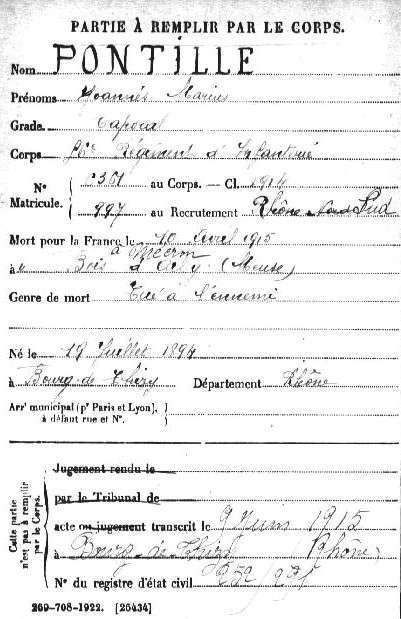 PARTIE À REMPLIR PAR LE CORPS.
Nom PONTILLE
Prénoms Joannès Marius
Grade Caporal
Corps Régiment d'Infanterie
N° Matricule. { 5351 au Corps. — Cl. 1914
997 au Recrutement Rhône Sud
Mort pour la France le 10 Avril 1915
à Bois d'Ailly (Meuse)
Genre de mort Tué à l'ennemi
Né le 19 Juillet 1894
à Bourg-de-Thizy Département Rhône
Arrᵗ municipal (pʳ Paris et Lyon), à défaut rue et N°.
Cette partie n'est pas à remplir par le Corps.
Jugement rendu le
par le Tribunal de
acte ou jugement transcrit le 9 Juin 1915
à Bourg-de-Thizy Rhône
N° du registre d'état civil
269-708-1922. [26434]